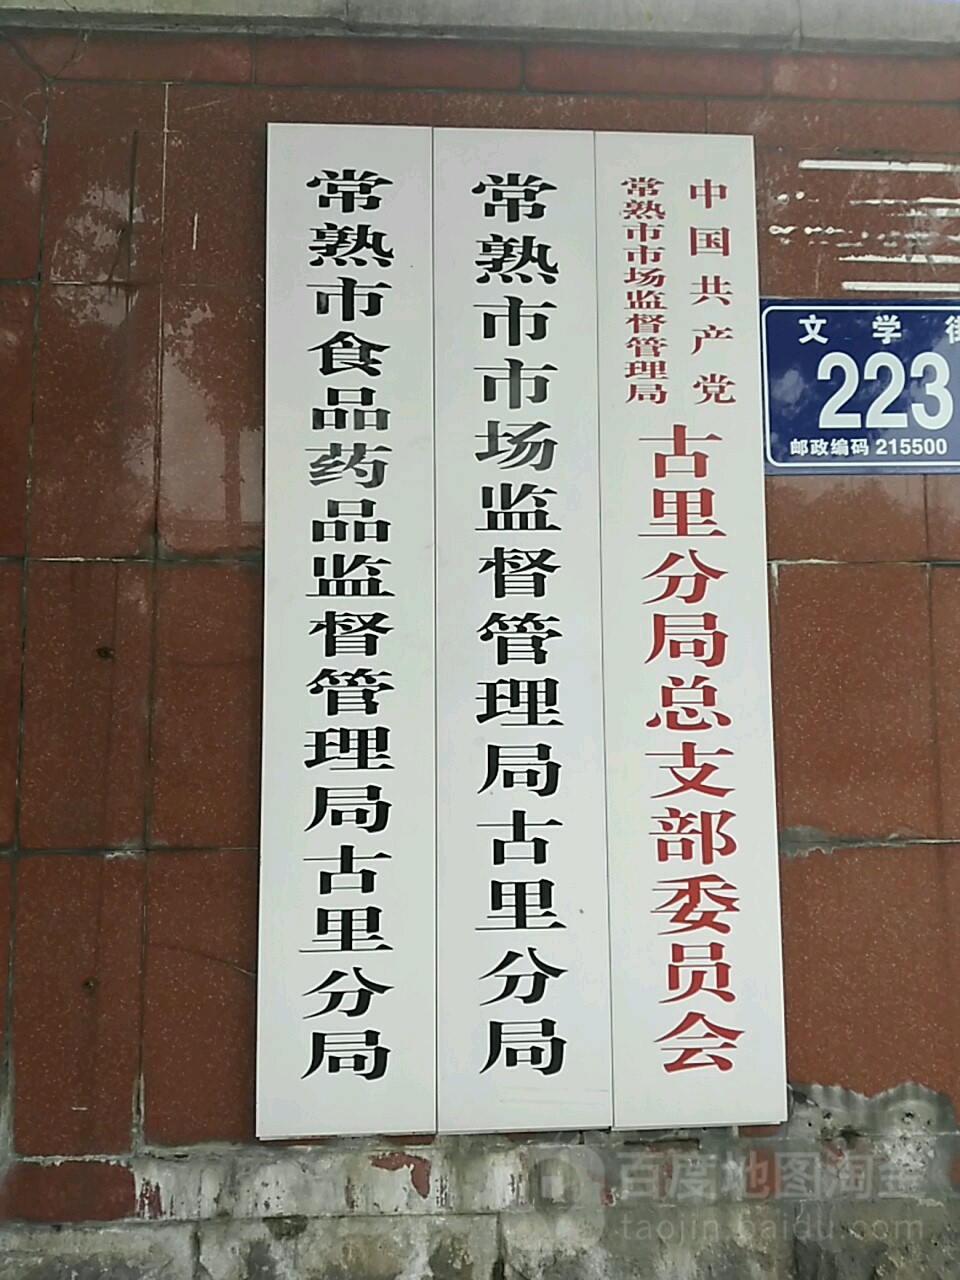 中国共产党
常熟市市场监督管理局
古里分局总支部委员会
常熟市市场监督管理局古里分局
常熟市食品药品监督管理局古里分局
文学街
223
邮政编码 215500
百度地图淘金
taojin.baidu.com